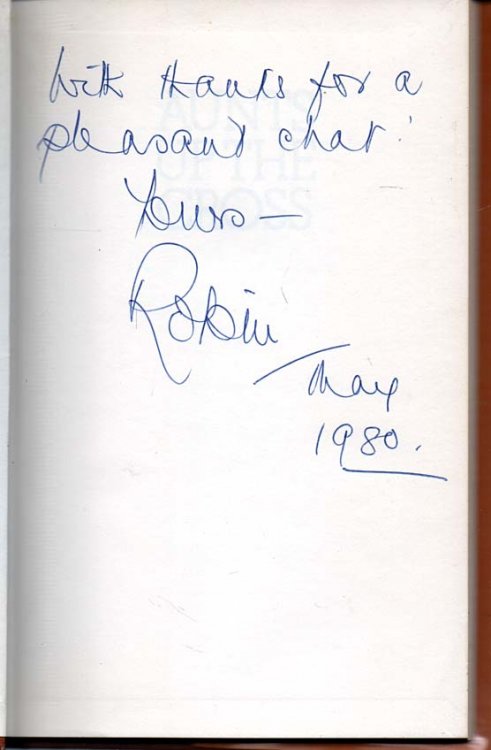 With thanks for a
pleasant chat!
Yours —
Robin
May
1980.
AUNTS
UP THE
CROSS